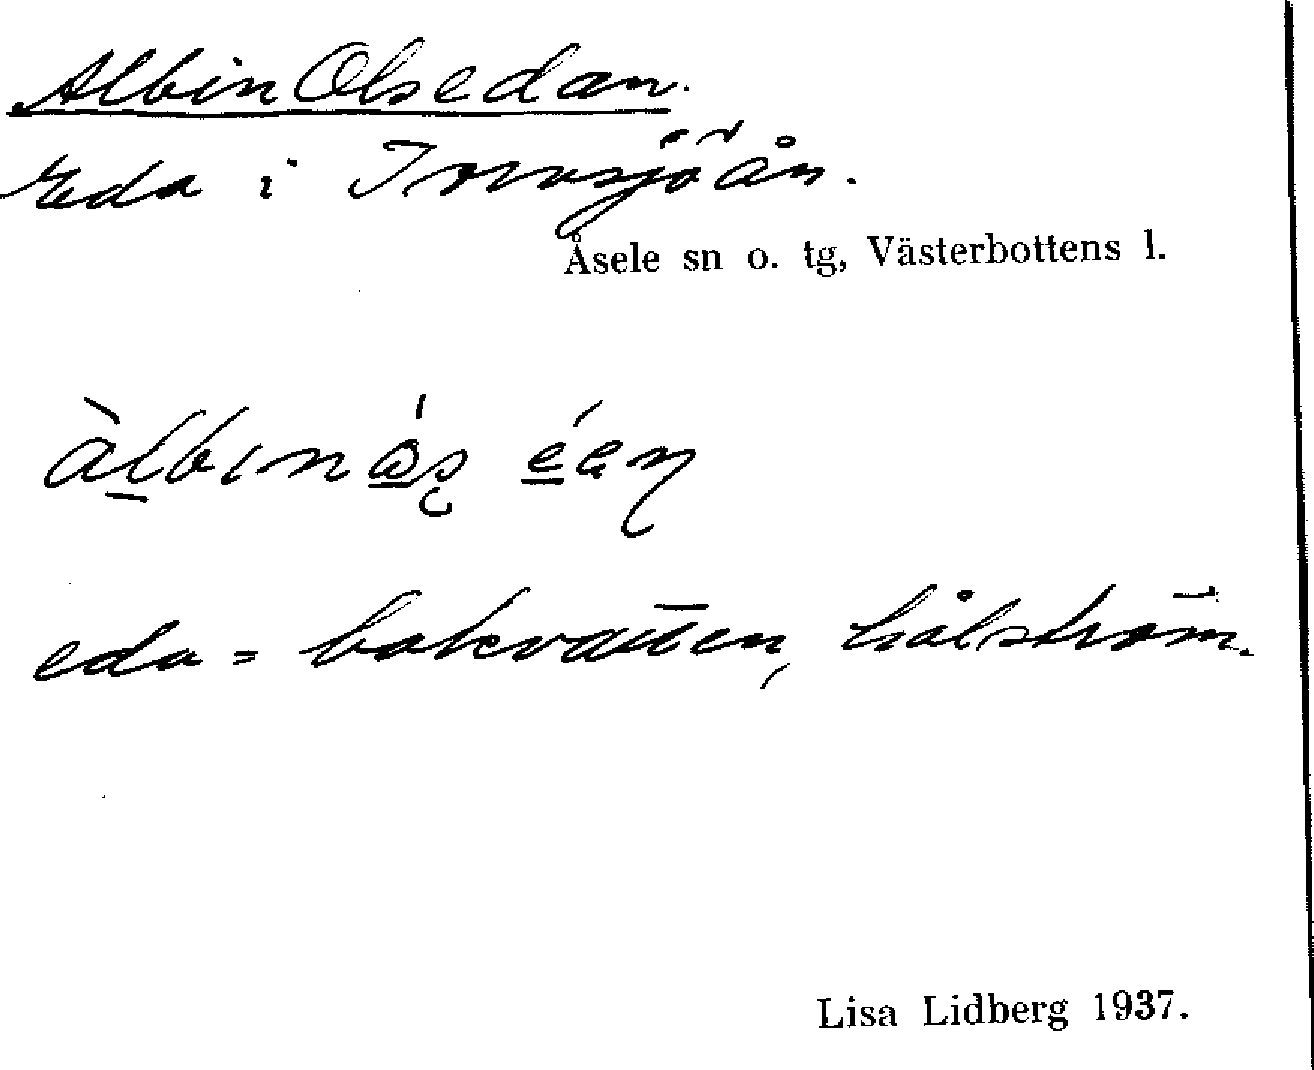 Albin Olsedan.
Eda i Torvsjöån.
Åsele sn o. tg, Västerbottens l.
eda = bakvatten, hålström.
Lisa Lidberg 1937.